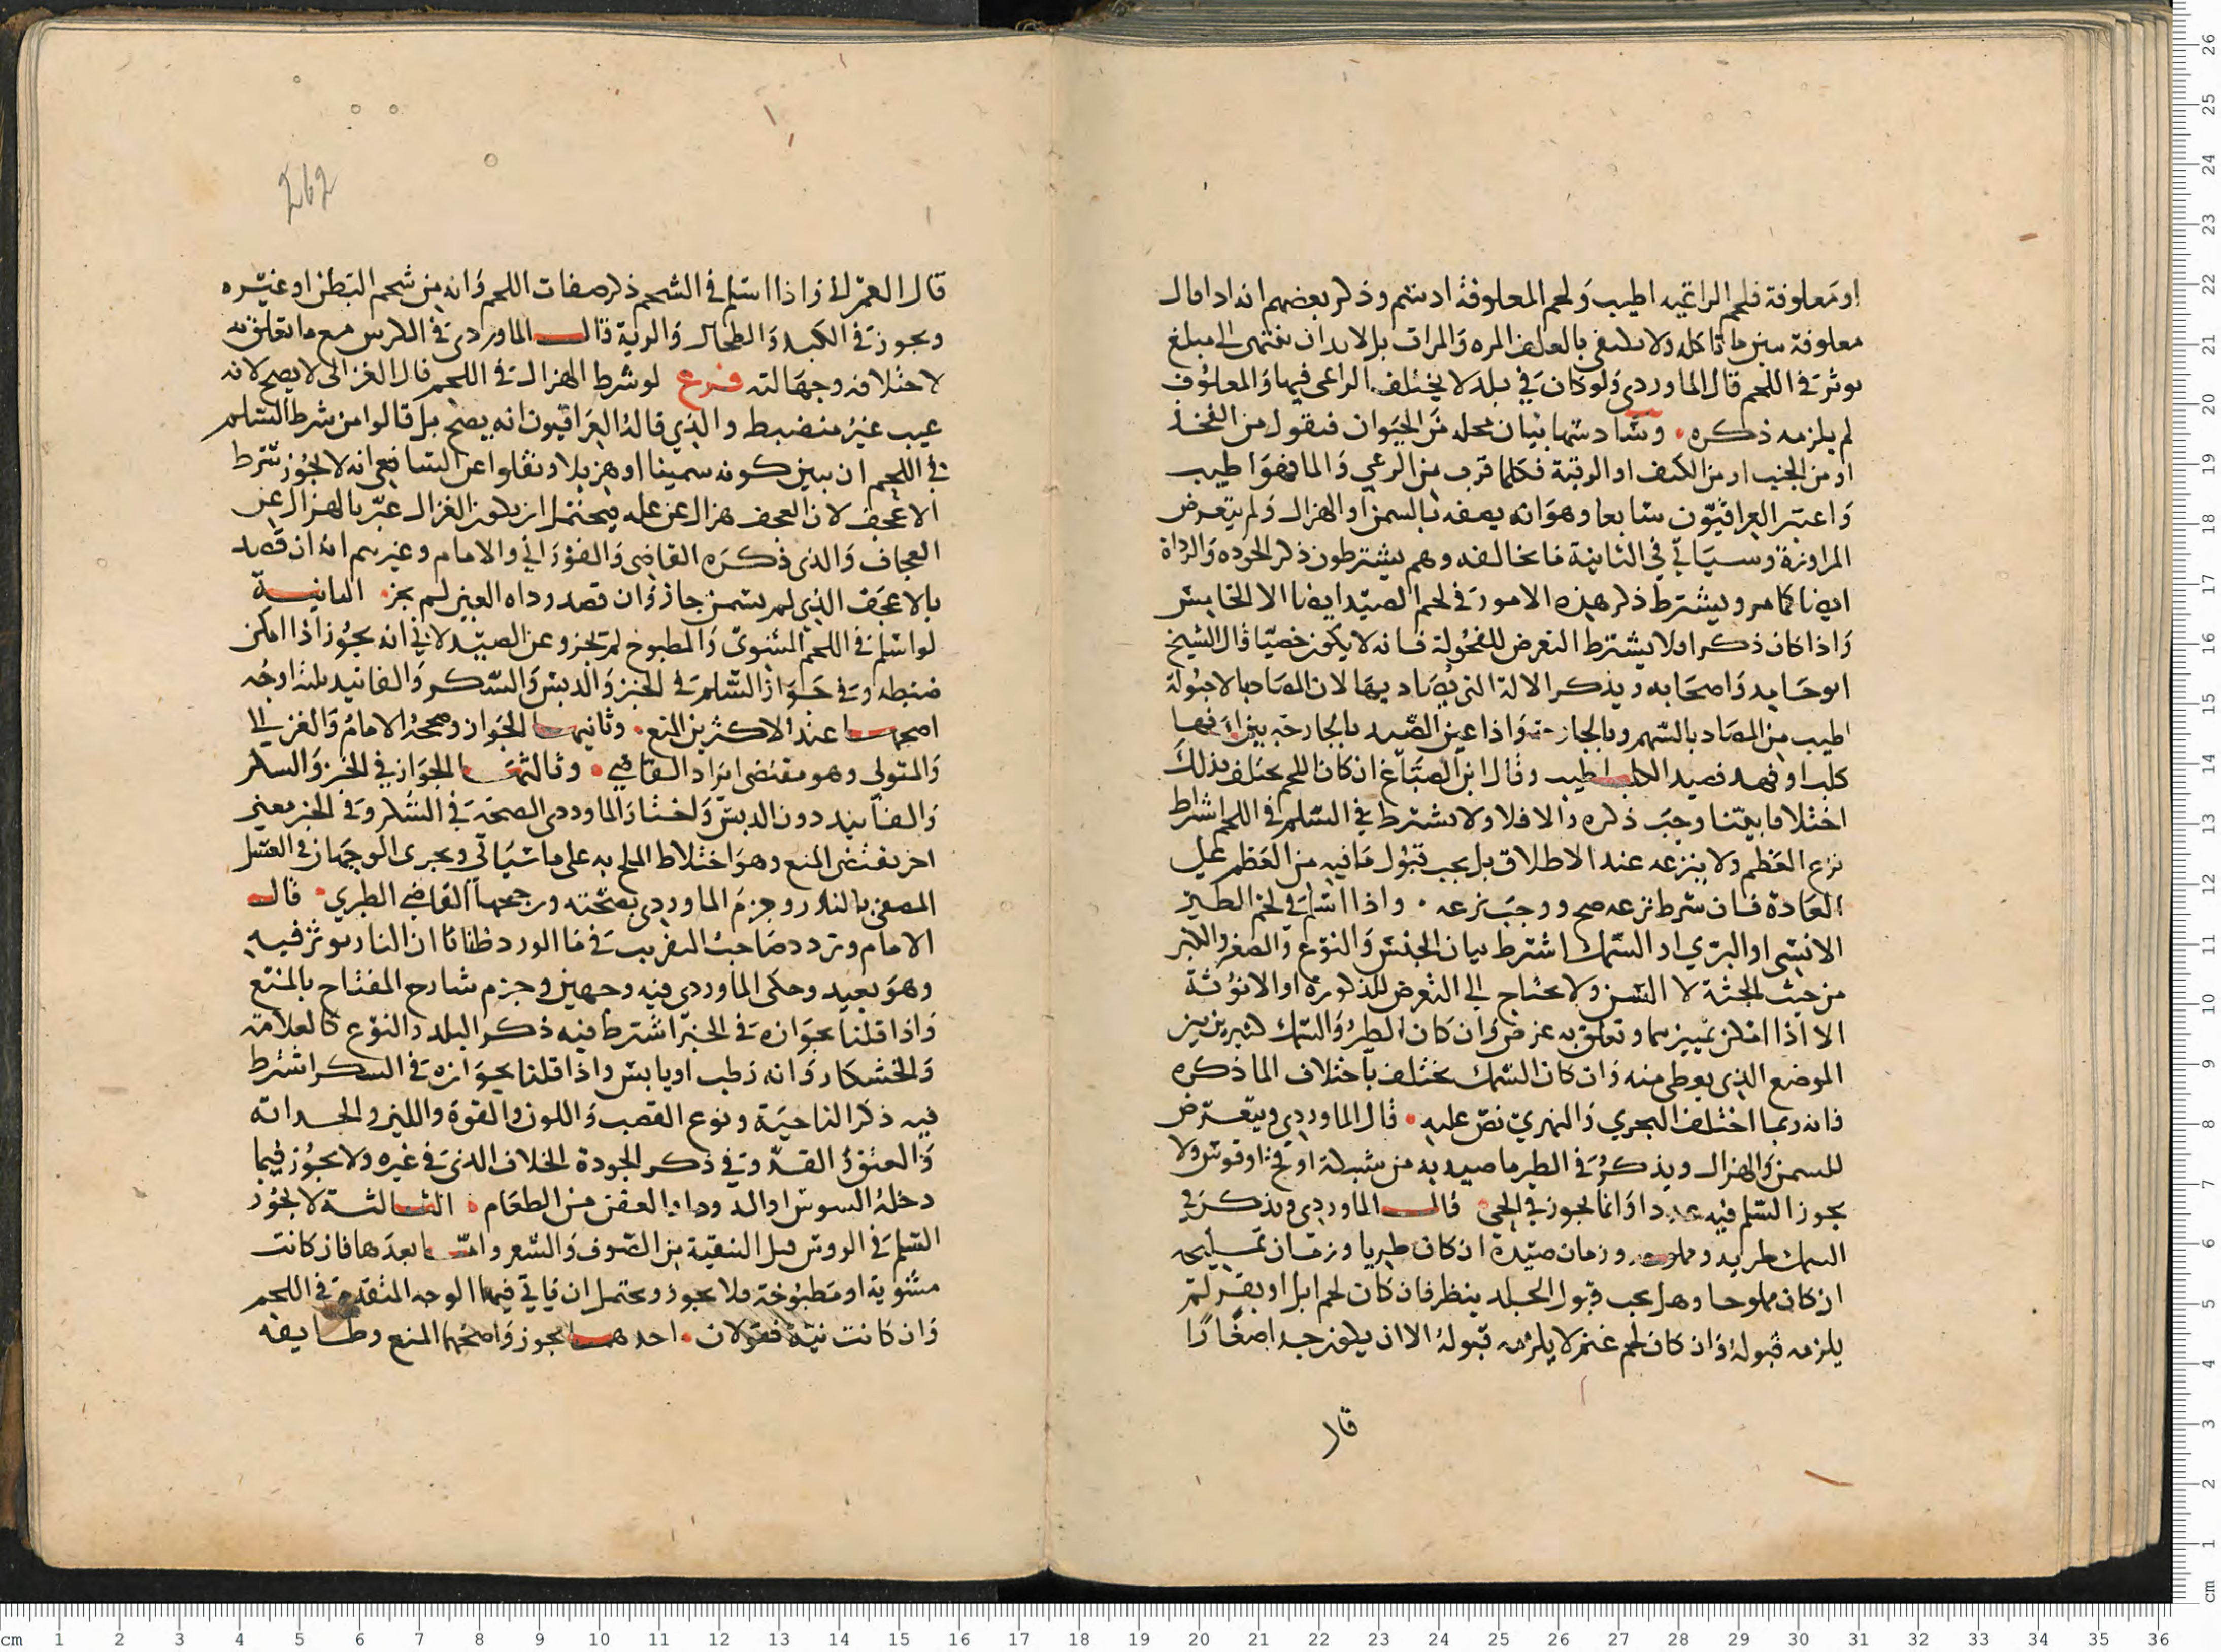 او معلوفة فلحم الراعيه اطيب ولحم المعلوفة ادسم وذكر بعضهم انه اذا قال
معلوفة يبين ما تاكله ولا يكتفى بالعلف المره والمرات بل لا بد ان ينتهى الى مبلغ
يوثر في اللحم قال الماوردي ولو كان في بلد لا يختلف الراعى فيها والمعلوف
لم يلزمه ذكره وسادسها بيان محله من الحيوان فيقول من الفخذ
او من الجنب او من الكتف او الرقبة فكلما قرب من الرعي والما فهو اطيب
واعتبر العراقيون سابعا وهو انه يصفه بالسمن او الهزال ولم يتعرض
المراوزة وسياتي في الثانية ما يخالفه وهم يشترطون ذكر الجوده والرداة
ايضا كما مر ويشترط ذكر هذه الامور في لحم الصيد ايضا الا الخامس
واذا كان ذكرا فلا يشترط التعرض للفحولة فانه لا يكون خصيا قال الشيخ
ابو حامد واصحابه ويذكر الالة التي يصاد بها لان المصاد بالاحبولة
اطيب من المصاد بالسهم وبالجارحة واذا عين الصيد بالجارحة بين انها
كلب او فهد فصيد الكلب اطيب وقال ابن الصباغ ان كان اللحم يختلف بذلك
اختلافا بينا وجب ذكره والا فلا ولا يشترط في السلم في اللحم اشراط
نزع العظم ولا ينزعه عند الاطلاق بل يجب قبول ما فيه من العظم على
العادة فان شرط نزعه صح ووجب نزعه واذا اسلم في لحم الطير
الانسى او البري او السمك اشترط بيان الجنس والنوع والصغر والكبر
من حيث الجثة لا السن ولا يحتاج الى التعرض للذكورة او الانوثة
الا اذا امكن تمييزهما وتعلق به غرض وان كان الطير والسمك كبيرين بين
الموضع الذي يعطى منه وان كان السمك يختلف باختلاف الما ذكره
فانه ربما اختلف البحري والنهري نص عليه قال الماوردي ويتعرض
للسمن والهزال ويذكر في الطير ما صيد به من شبكة او فخ او قوس ولا
يجوز السلم فيه عددا وانما يجوز في الحي قال الماوردي ويذكر في
السمك طريه ومملوحه وزمان صيدة ان كان طريا وزمان تمليحه
ان كان مملوحا وهل يجب قبول الجلد ينظر فان كان لحم ابل او بقر لم
يلزمه قبوله وان كان لحم غنم لا يلزمه قبوله الا ان يكون جدا صغارا
قال
262
قال العمرانى واذا اسلم في الشحم ذكر صفات اللحم وانه من شحم البطن او غيره
ويجوز في الكبد والطحال والرية قال الماوردي في الكرش مع ما تعلق به
لاختلافه وجهالته فرع لو شرط الهزال في اللحم قال الغزالى لا يصح لانه
عيب غير منضبط والذي قاله العراقيون انه يصح بل قالوا من شرط السلم
في اللحم ان يبين كونه سمينا او هزيلا ونقلوا عن الشافعي انه لا يجوز شرط
الاعجف لان العجف هزال عن عله فيحتمل ان يكون الغزالى عبر بالهزال عن
العجاف والذي ذكره القاضى والفوراني والامام وغيرهم انه ان قصد
بالاعجف الذي لم يسمن جاز وان قصد رداه العين لم يجز الثانية
لو اسلم في اللحم المشوى والمطبوخ لم يجز وعن الصيدلانى انه يجوز اذا امكن
ضبطه وفى جواز السلم في الخبز والدبس والسكر والفانيد ثلثة اوجه
اصحها عند الاكثرين المنع وثانيها الجواز وصححه الامام والغزالى
والمتولى وهو مقتضى ايراد القاضي وثالثها الجواز في الخبز والسكر
والفانيد دون الدبس واختار الماوردى الصحة في السكر وفي الخبز معنى
اخر يقتضى المنع وهو اختلاط الملح به على ما سياتي ويجرى الوجهان في العسل
المصفى بالنار وجزم الماوردي بصحته ورجحها القاضي الطبري قال
الامام وتردد صاحب التقريب في ما الورد ظانا ان النار يوثر فيه
وهو بعيد وحكى الماوردي فيه وجهين وجزم شارح المفتاح بالمنع
واذا قلنا بجوازه في الخبز اشترط فيه ذكر البلد والنوع كالعلامة
والخشكار وانه رطب او يابس واذا قلنا بجوازه في السكر اشترط
فيه ذكر الناحية ونوع القصب واللون والقوة واللين والحداثه
والعتق والقد وفي ذكر الجودة الخلاف الذي في غيره ولا يجوز فيما
دخله السوس او الدود او العفن من الطعام الثالثة لا يجوز
السلم في الروس قبل التنقية من الصوف والشعر واما بعدها فان كانت
مشوية او مطبوخة فلا يجوز ويحتمل ان ياتي فيها الوجه المتقدم في اللحم
وان كانت نية فقولان احدهما يجوز واصحهما المنع وطايفه